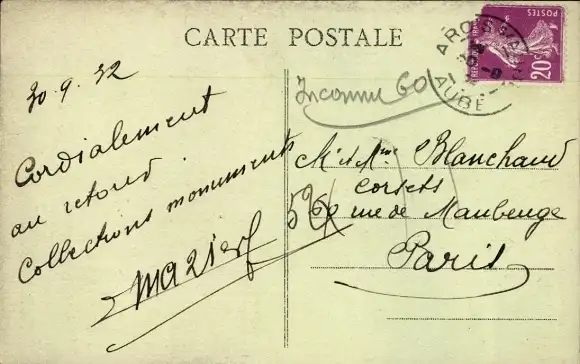 CARTE POSTALE
POSTES
20c
AUBE
30.9.32
Cordialement
au retour
Collections monuments
Inconnu 60
Mr et Mme Blanchard
Corsets
60 rue de Maubeuge
Paris